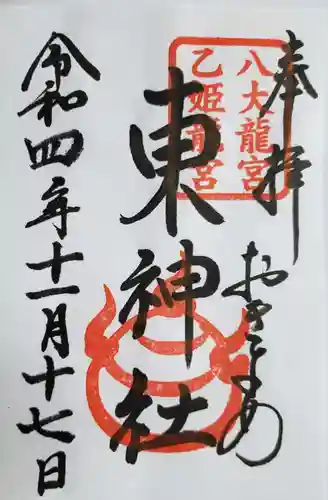 奉拝
おきよめ
八大龍宮
乙姫龍宮
東神社
令和四年十一月十七日